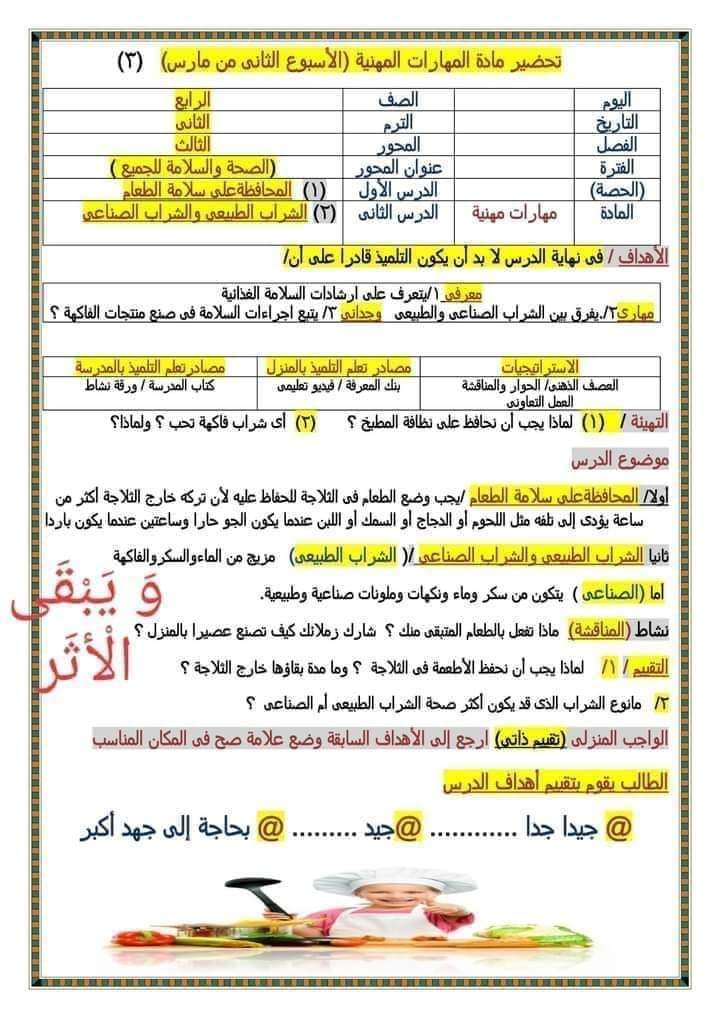 تحضير مادة المهارات المهنية (الأسبوع الثانى من مارس) (٣)
اليوم الصف الرابع
التاريخ الترم الثانى
الفصل المحور الثالث
الفترة عنوان المحور (الصحة والسلامة للجميع )
(الحصة) الدرس الأول (١) المحافظةعلى سلامة الطعام
المادة مهارات مهنية الدرس الثانى (٢) الشراب الطبيعى والشراب الصناعى
الأهداف / فى نهاية الدرس لا بد أن يكون التلميذ قادرا على أن/
معرفى ١/يتعرف على ارشادات السلامة الغذائية
مهارى٢/.يفرق بين الشراب الصناعى والطبيعى وجدانى ٣/ يتبع اجراءات السلامة فى صنع منتجات الفاكهة ؟
الاستراتيجيات مصادر تعلم التلميذ بالمنزل مصادرتعلم التلميذ بالمدرسة
العصف الذهنى/ الحوار والمناقشة بنك المعرفة / فيديو تعليمى كتاب المدرسة / ورقة نشاط
العمل التعاونى
التهيئة / (١) لماذا يجب أن نحافظ على نظافة المطبخ ؟ (٢) أى شراب فاكهة تحب ؟ ولماذا؟
موضوع الدرس
أولا/ المحافظةعلى سلامة الطعام /يجب وضع الطعام فى الثلاجة للحفاظ عليه لأن تركه خارج الثلاجة أكثر من
ساعة يؤدى إلى تلفه مثل اللحوم أو الدجاج أو السمك أو اللبن عندما يكون الجو حارا وساعتين عندما يكون باردا
ثانيا الشراب الطبيعى والشراب الصناعى /( الشراب الطبيعى) مزيج من الماءوالسكروالفاكهة
أما (الصناعى ) يتكون من سكر وماء ونكهات وملونات صناعية وطبيعية.
وَ يَبْقَى
نشاط (المناقشة) ماذا تفعل بالطعام المتبقى منك ؟ شارك زملائك كيف تصنع عصيرا بالمنزل ؟
الْأثَر
التقييم / ١/ لماذا يجب أن نحفظ الأطعمة فى الثلاجة ؟ وما مدة بقاؤها خارج الثلاجة ؟
٢/ مانوع الشراب الذى قد يكون أكثر صحة الشراب الطبيعى أم الصناعى ؟
الواجب المنزلى (تقييم ذاتى) ارجع إلى الأهداف السابقة وضع علامة صح فى المكان المناسب
الطالب يقوم بتقييم أهداف الدرس
@ جيدا جدا ............ @جيد ......... @ بحاجة إلى جهد أكبر